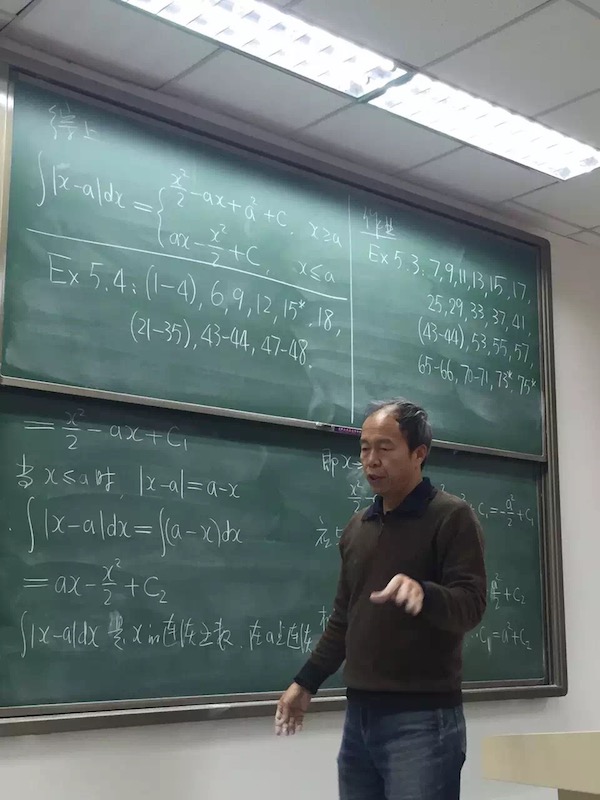 综上
∫|x-a|dx = { x²/2 - ax + a² + C, x ≥ a
ax - x²/2 + C, x ≤ a
Ex 5.4: (1-4), 6, 9, 12, 15*, 18,
(21-35), 43-44, 47-48.
作业
Ex 5.3: 7, 9, 11, 13, 15, 17,
25, 29, 33, 37, 41,
(43-44), 53, 55, 57,
65-66, 70-71, 73*, 75*
= x²/2 - ax + C₁
当 x ≤ a 时, |x-a| = a-x
∫|x-a|dx = ∫(a-x)dx
= ax - x²/2 + C₂
∫|x-a|dx 是 x 的连续函数, 在a点连续
即 x
x²/2
C₁ = -a²/2 + C₁
在
a²/2 + C₂
C₁ = a² + C₂